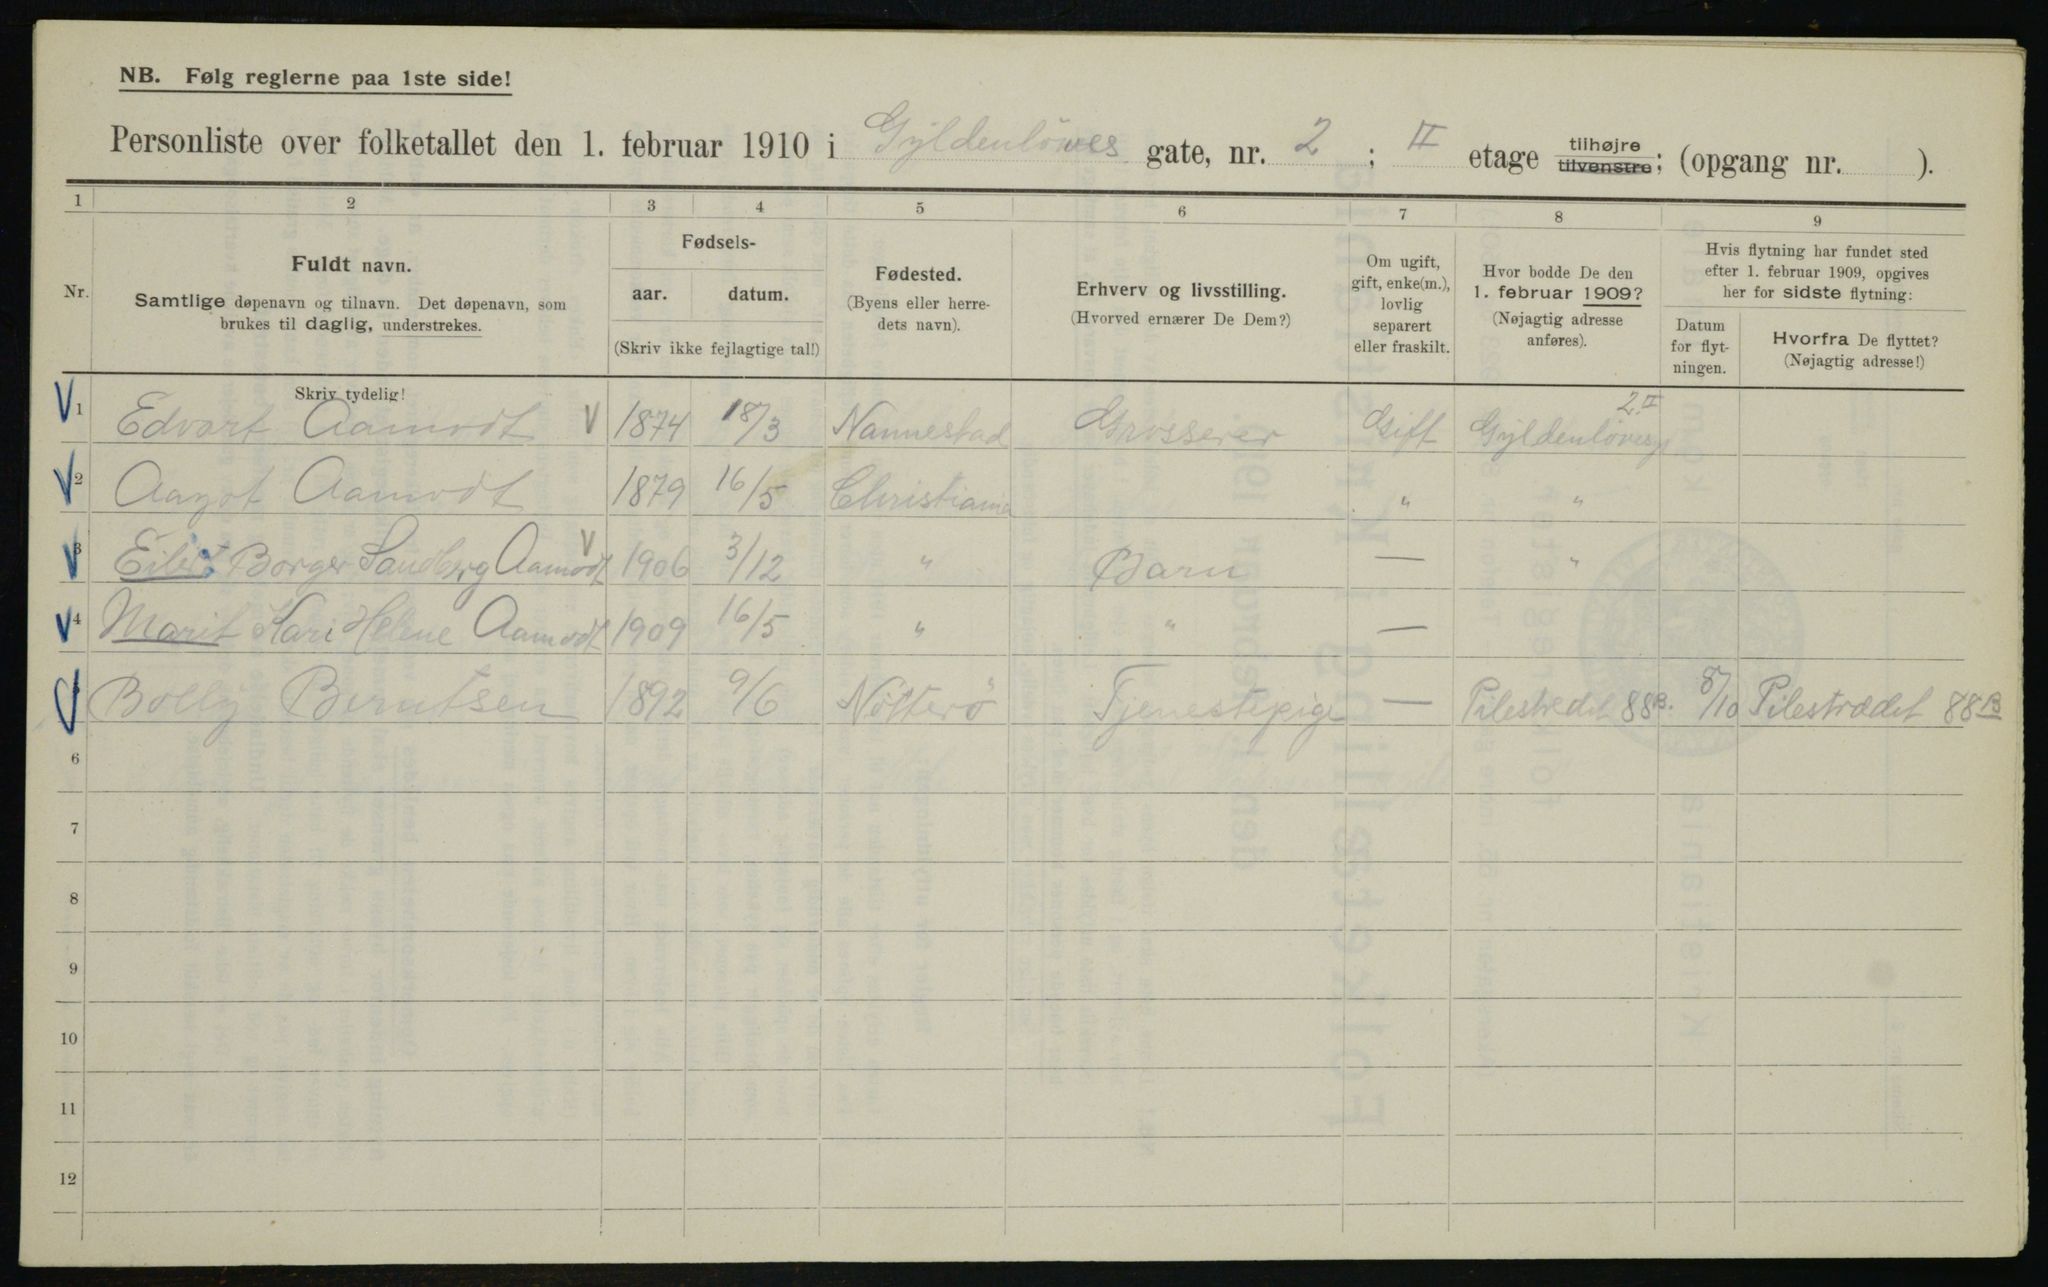 NB. Følg reglerne paa 1ste side!
Personliste over folketallet den 1. februar 1910 i Gyldenløves gate, nr. 2 ; II etage tilhøjre tilvenstre; (opgang nr. ).
1 2 3 4 5 6 7 8 9
Nr.
Fuldt navn.
Samtlige døpenavn og tilnavn. Det døpenavn, som
brukes til daglig, understrekes.
Fødsels-
aar. datum.
(Skriv ikke fejlagtige tal!)
Fødested.
(Byens eller herre-
dets navn).
Erhverv og livsstilling.
(Hvorved ernærer De Dem?)
Om ugift,
gift, enke(m.),
lovlig
separert
eller fraskilt.
Hvor bodde De den
1. februar 1909?
(Nøjagtig adresse
anføres).
Hvis flytning har fundet sted
efter 1. februar 1909, opgives
her for sidste flytning:
Datum
for flyt-
ningen.
Hvorfra De flyttet?
(Nøjagtig adresse!)
Skriv tydelig!
1 Edvart Aamodt 1874 18/3 Nannestad Grosserer Gift Gyldenløvesg 2.II
2 Aagot Aamodt 1879 16/5 Christiania " "
3 Eiler Borger Sandberg Aamodt 1906 3/12 " Barn — "
4 Marit Kari Helene Aamodt 1909 16/5 " " —
Bolly Berntsen 1892 9/6 Nötterö Tjenestepige — Pilestredet 88B. 8/10 Pilestrædet 88B
6
7
8
9
10
11
12